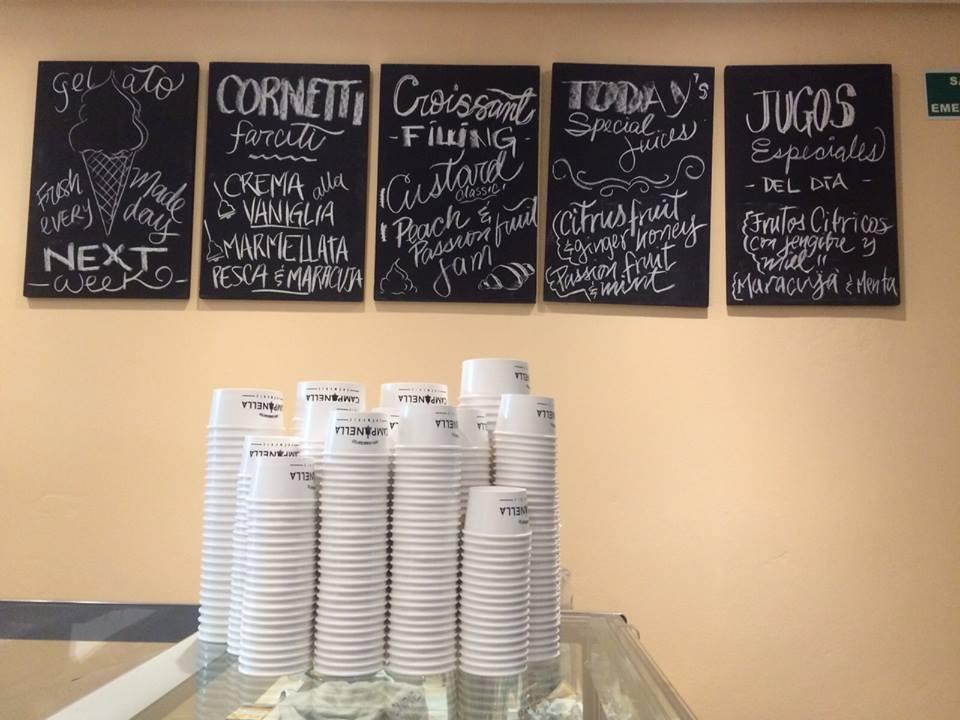 gelato
Fresh Made
every day
NEXT
week
CORNETTI
farciti
CREMA alla
VANIGLIA
MARMELLATA
PESCA & MARACUJA
Croissant
- FILLING -
Custard
classic
Peach &
Passion fruit
Jam
TODAY's
Special
juices
Citrus fruit
& ginger honey
Passion fruit
& mint
JUGOS
Especiales
- DEL DIA -
Frutos Citricos
con jengibre y
miel
Maracuyá & Menta
EME
CAMPANELLA
CAMPANELLA
CAMPANELLA
CAMPANELLA